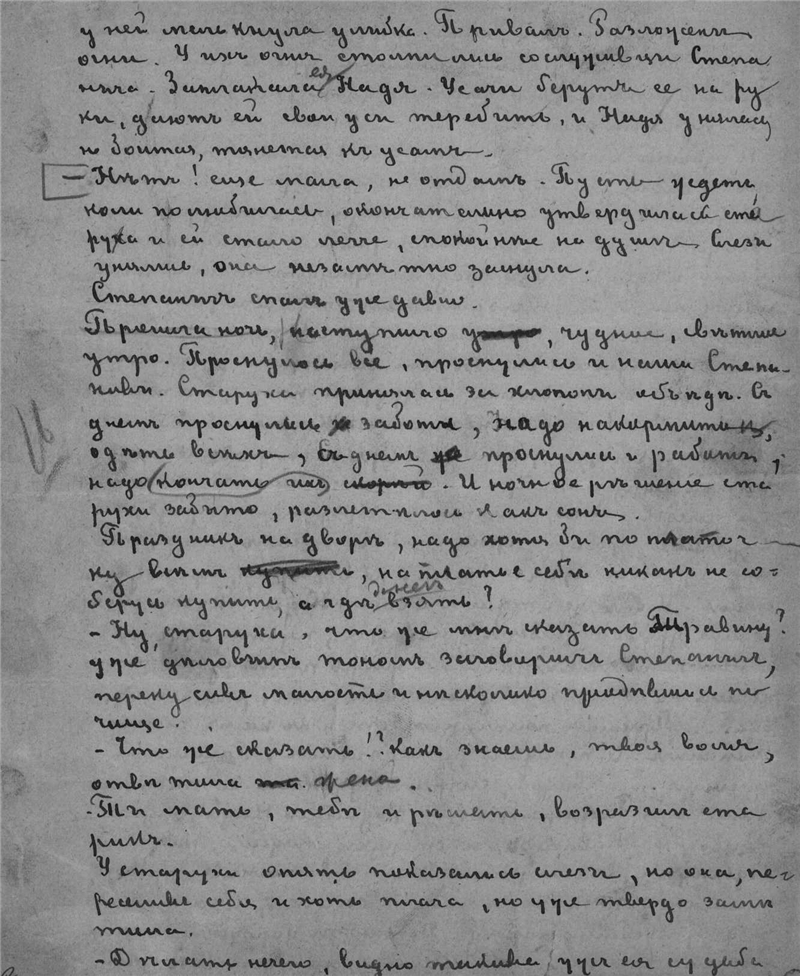 у ней мелькнула улыбка. Привалъ. Разложены
огни. У ихъ огня столпились сослуживцы Степа
ныча. Заплакала ея Надя. Усачи берутъ ее на ру
ки, даютъ ей свои усы теребить, и Надя унялась,
не боится, тянется къ усамъ.
– Нѣтъ! еще мала, не отдамъ. Пусть ждетъ,
коли полюбилась, окончательно утвердилась ста
руха и ей стало легче, спокойнѣе на душѣ. Слезы
унялись, она незамѣтно заснула.
Степанычъ спалъ уже давно.
Прошла ночь, наступило утро, чудное, свѣтлое
утро. Проснулось все, проснулись и наши Степа-
нычи. Старуха принялась за хлопоты объ ѣдѣ. Съ
днемъ проснулись заботы, надо накормить,
одѣть всѣхъ, съ днемъ проснулись и работы,
надо кончать ихъ скорѣй. И ночное рѣшение ста
рухи забыто, разлетѣлось какъ сонъ.
Праздникъ на дворѣ, надо хотя бы по платоч
ку всѣмъ купить, на платье себѣ никакъ не со=
берусь купить, а гдѣ денегъ взять?
– Ну, старуха, что же мнѣ сказать Травину?
уже дѣловымъ тономъ заговорилъ Степанычъ,
перекусивъ малость и нѣсколько
– Что же сказать!? Какъ знаешь, твоя воля,
отвѣтила жена.
– Ты мать, тебѣ и рѣшать, возразилъ ста
рикъ.
У старухи опять показались слезы, но она, пе-
ресиливъ себя и хоть плача, но уже твердо замѣ
тила.
– Дѣлать нечего, видно такова ужъ ея судьба